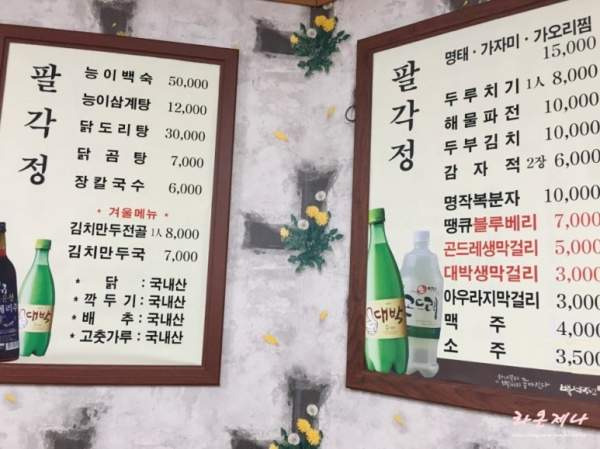 팔각정
능이백숙 50,000
능이삼계탕 12,000
닭도리탕 30,000
닭곰탕 7,000
장칼국수 6,000
* 겨울메뉴 *
김치만두전골 1人 8,000
김치만두국 7,000
* 닭 : 국내산
* 깍두기 : 국내산
* 배추 : 국내산
* 고춧가루 : 국내산
대박
팔각정
명태·가자미·가오리찜
15,000
두루치기 1人 8,000
해물파전 10,000
두부김치 10,000
감자적 2장 6,000
명작복분자 10,000
땡큐블루베리 7,000
곤드레생막걸리 5,000
대박생막걸리 3,000
아우라지막걸리 3,000
맥주 4,000
소주 3,500
대박
곤드레
라온제나